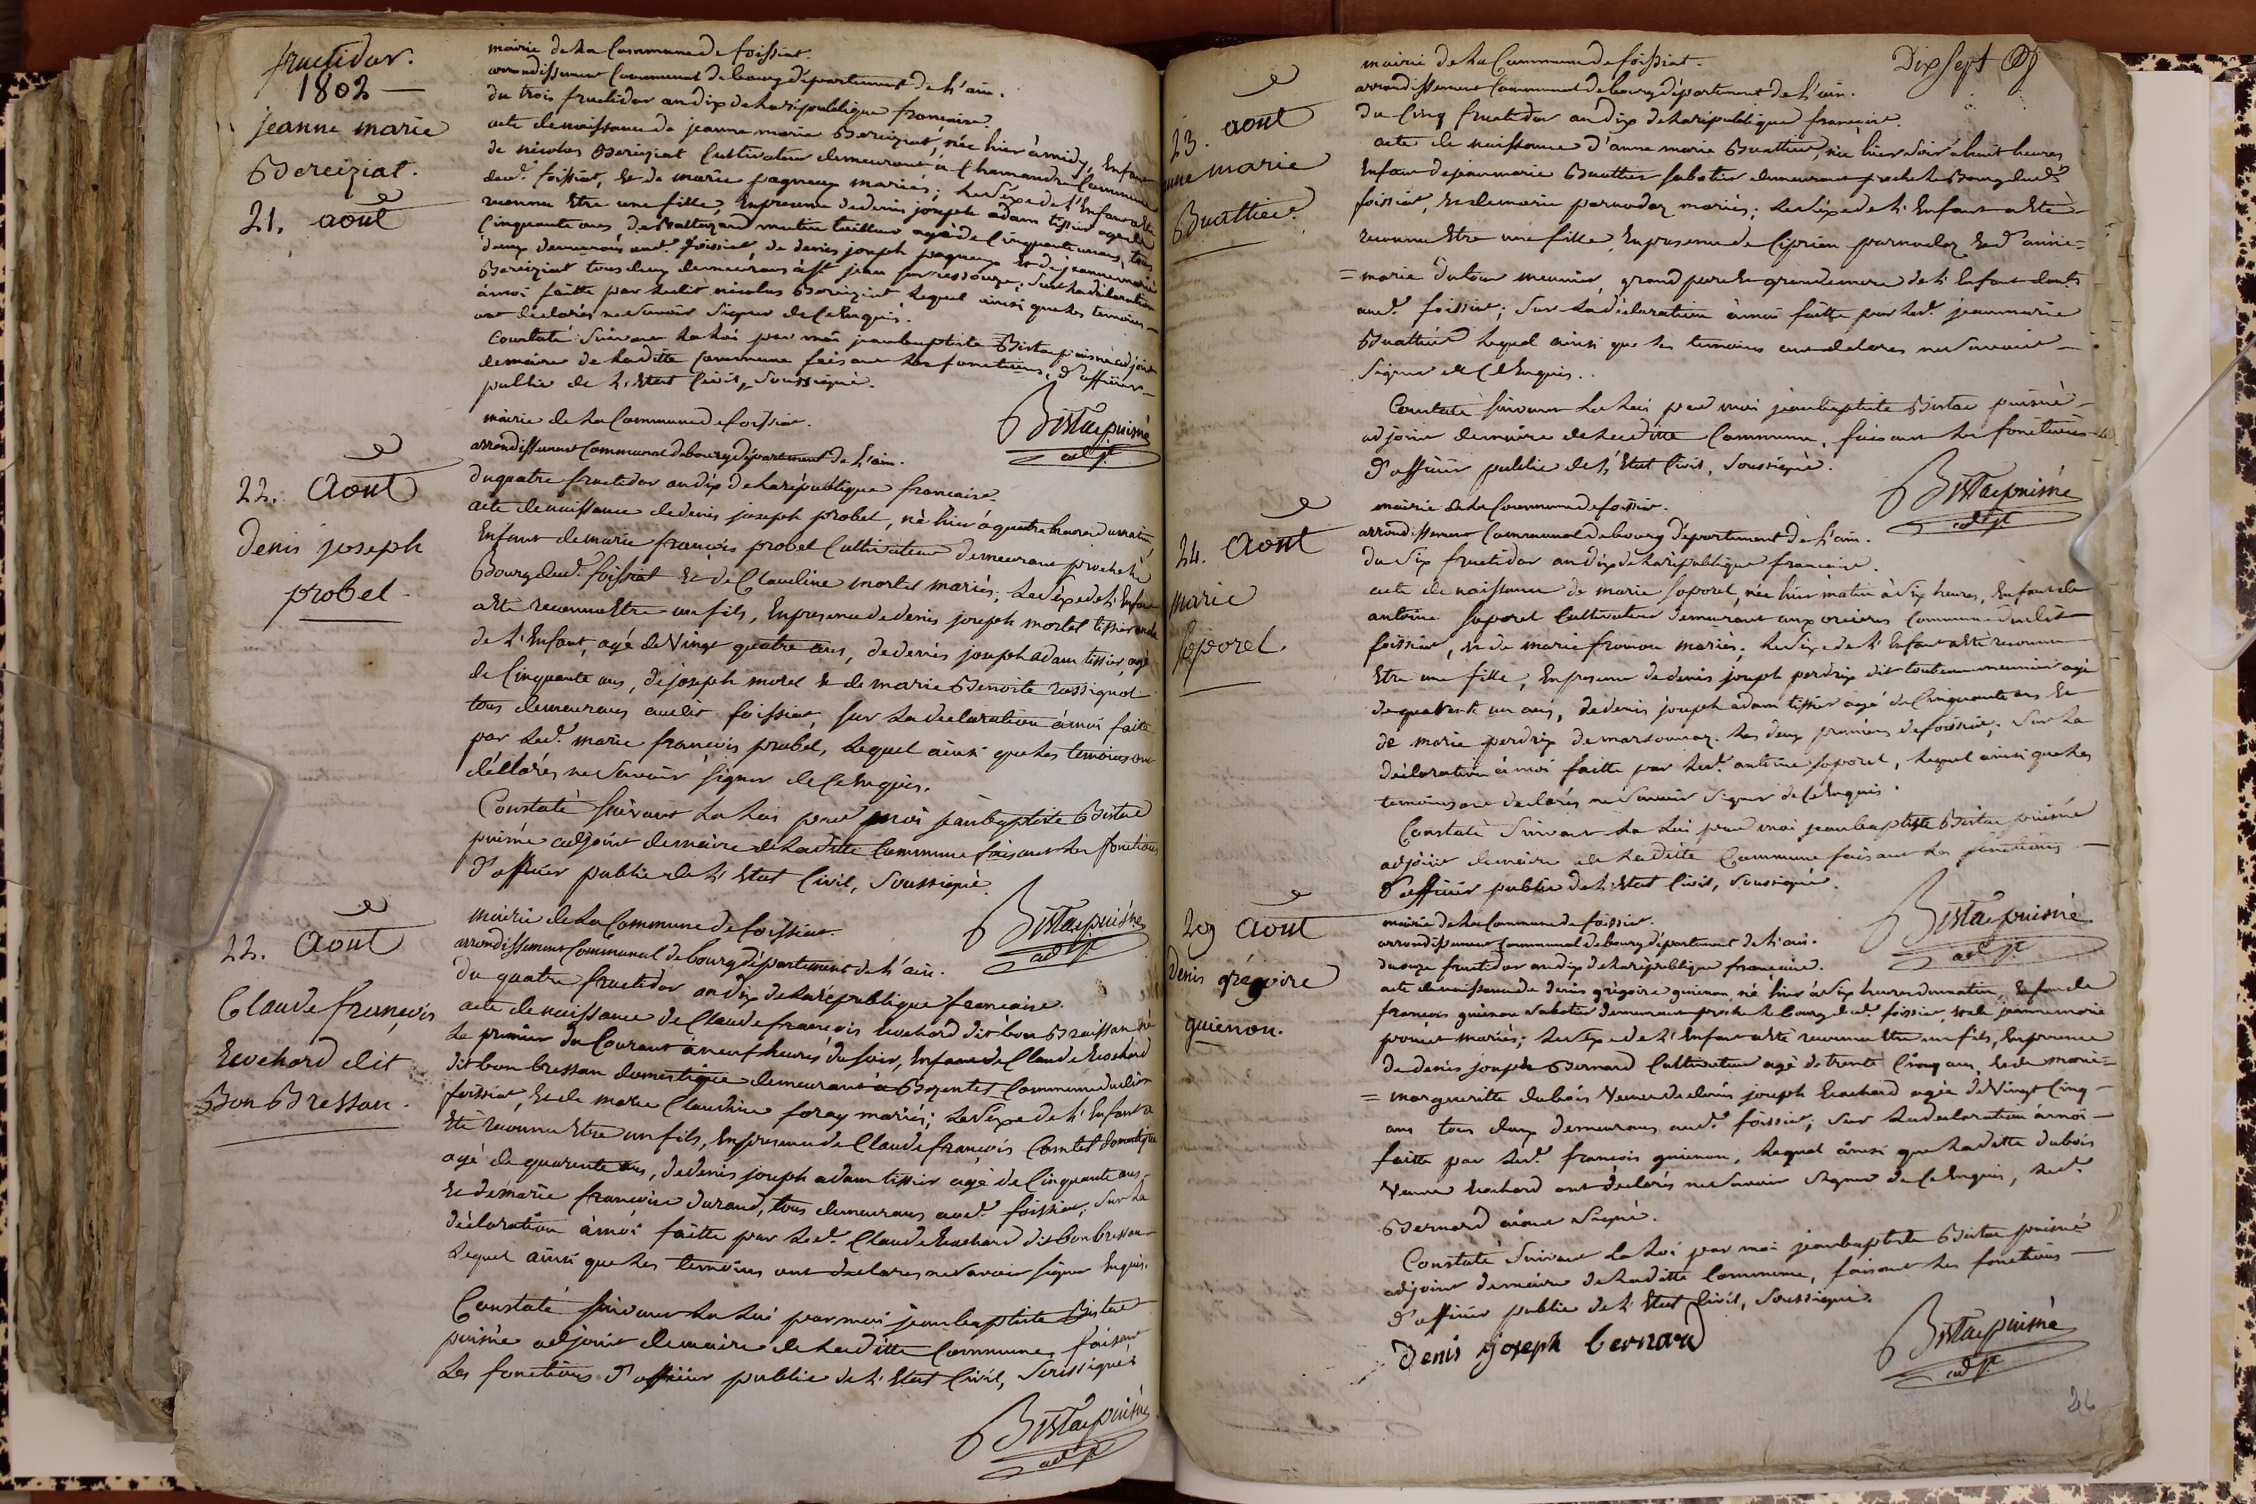 fructidor.
1802 —
jeanne marie
Bereiziat.
21. aout
mairie de la Commune de foissiat.
arrondissement Communal de bourg département de l'ain.
du trois fructidor an dix de la république francaise.
acte de naissance de jeanne marie Bereiziat, née hier à midy, Enfant
de nicolas Bereiziat Cultivateur demeurant à Chamandre Commune
dud. foissiat, et de marie pagneux mariés; le sexe de l'Enfant a été
reconnu Etre une fille, En presence de denis joseph adam tissier agé de
Cinquante ans, de Baltazard mutin tailleur agé de Cinquante un ans, tous
deux demeurans aud. foissiat, de denis joseph pagneux et de jeanne marie
Bereiziat tous deux demeurans à st jean sur ressouze, sur la declaration
à moi faitte par ledit nicolas Bereiziat, lequel ainsi que les temoins
ont déclarés ne savoir signer de Ce Enquis.
Constaté suivant la loi par moi jean baptiste Bistac puisné adjoint
de maire de la ditte Commune faisant les fonctions d'officier
public de l'Etat Civil, soussigné.
Bistac puisné
adjt.
22. Aout
Denis joseph
probel
mairie de la Commune de foissiat.
arrondissement Communal de bourg département de l'ain.
du quatre fructidor an dix de la république francaise.
acte de naissance de denis joseph probel, né hier à quatre heures du matin,
Enfant de marie françois probel Cultivateur demeurant proche le
Bourg dud. foissiat et de Claudine mortel mariés; le sexe de l'Enfant
a été reconnu Etre un fils, En presence de denis joseph mortel tissier oncle
de l'Enfant, agé de vingt quatre ans, de denis joseph adam tissier, agé
de Cinquante ans, de joseph morel et de marie Benoite rossignol
tous demeurans audit foissiat, sur la declaration à moi faite
par led. marie françois probel, lequel ainsi que les temoins ont
déclarés ne savoir signer de Ce Enquis.
Constaté suivant la loi par moi jean baptiste Bistac
puisné adjoint de maire de la ditte Commune faisant les fonctions
d'officier public de l'Etat Civil, soussigné.
Bistac puisné
adjt.
22. Aout
Claude françois
Rochard dit
Bon Bressan.
mairie de la Commune de foissiat.
arrondissement Communal de bourg département de l'ain.
du quatre fructidor an dix de la république francaise.
acte de naissance de Claude francois Rochard dit bon Bressan né
le premier du Courant à neuf heures du soir, Enfant de Claude Rochard
dit bon bressan domestique demeurant à Bezentet Commune dudit
foissiat, et de marie Claudine foray mariés; le sexe de l'Enfant a
été reconnu Etre un fils, En presence de Claude francois Comtet domestique
agé de quarente ans, de denis joseph adam tissier agé de Cinquante ans,
et de marie francoise durand, tous demeurans aud. foissiat; sur la
déclaration à moi faitte par led. Claude Rochard dit bon bressan
lequel ainsi que les temoins ont declares ne savoir signer Enquis.
Constaté suivant la loi par moi jean baptiste Bistac
puisné adjoint de maire de la ditte Commune, faisant
les fonctions d'officier public de l'Etat Civil, soussigné
Bistac puisné
adjt.
Dix sept
23. aout
anne marie
Buattier.
mairie de la Commune de foissiat.
arrondissement Communal de bourg département de l'ain.
du Cinq fructidor an dix de la république françaize.
acte de naissance d'anne marie Buattier, née hier soir à huit heures
Enfant de jean marie Buattier sabotier demeurant proche le Bourg dud.
foissiat, et de marie parnodaz mariés; le sexe de l'Enfant a été
reconnu Etre une fille, En presence de Ciprien parnodaz et d'anne=
=marie dutour meunier, grand pere et grand mere de l'Enfant dem.ts
aud. foissiat; sur la déclaration à moi faitte par led. jean marie
Buattier lequel ainsi que les temoins ont declares ne savoir
signer de Ce Enquis.
Constaté suivant la loi par moi jean baptiste Bistac puisné
adjoint de maire de la ditte Commune, faisant les fonctions
d'officier public de l'Etat Civil, soussigné.
Bistac puisné
adjt
24. Aout
marie
soporel.
mairie de la Commune de foissiat.
arrondissement Communal de bourg département de l'ain.
du six fructidor an dix de la république francaise.
acte de naissance de marie soporel, née hier matin à six heures, Enfant de
antoine soporel Cultivateur demeurant aux oricieres Commune dudit
foissiat, et de marie fromon mariés; le sexe de l'Enfant a été reconnu
Etre une fille, En presence de denis joseph perdrix dit toutenu meunier agé
de quarente un ans, de denis joseph adam tissier agé de Cinquante ans et
de marie perdrix de marsonnaz. les deux premiers de foissiat; sur la
déclaration à moi faitte par led. antoine soporel, lequel ainsi que les
temoins ont declarés ne savoir signer de Ce Enquis.
Constaté suivant la loi par moi jean baptiste Bistac puisné
adjoint de maire de la ditte Commune faisant les fonctions
d'officier public de l'Etat Civil, soussigné.
Bistac puisné
adjt.
29 Aout
Denis grégoire
guienon.
mairie de la Commune de foissiat.
arrondissement communal de bourg département de l'ain.
du onze fructidor an dix de la république francaise.
acte de naissance de denis grégoire guienon, né hier à six heures du matin, Enfant de
francois guienon sabotier demeurant proche le bourg dud. foissiat, et de jeanne marie
poncet mariés; le sexe de l'Enfant a été reconnu Etre un fils, En presence
de denis joseph Bernard Cultivateur agé de trente Cinq ans, et de marie=
=margueritte dubois veuve de denis joseph Rochard agée de vingt Cinq
ans tous deux demeurans aud. foissiat; sur la declaration à moi
faitte par led. francois guienon, lequel ainsi que la ditte dubois
veuve Rochard ont déclarés ne savoir signer de Ce Enquis, led.
Bernard aiant signé.
Constaté suivant la loi par moi jean baptiste Bistac puisné
adjoint de maire de la ditte Commune, faisant les fonctions
d'officier public de l'Etat Civil, soussigné.
Denis joseph bernard
Bistac puisné
adjt.
26